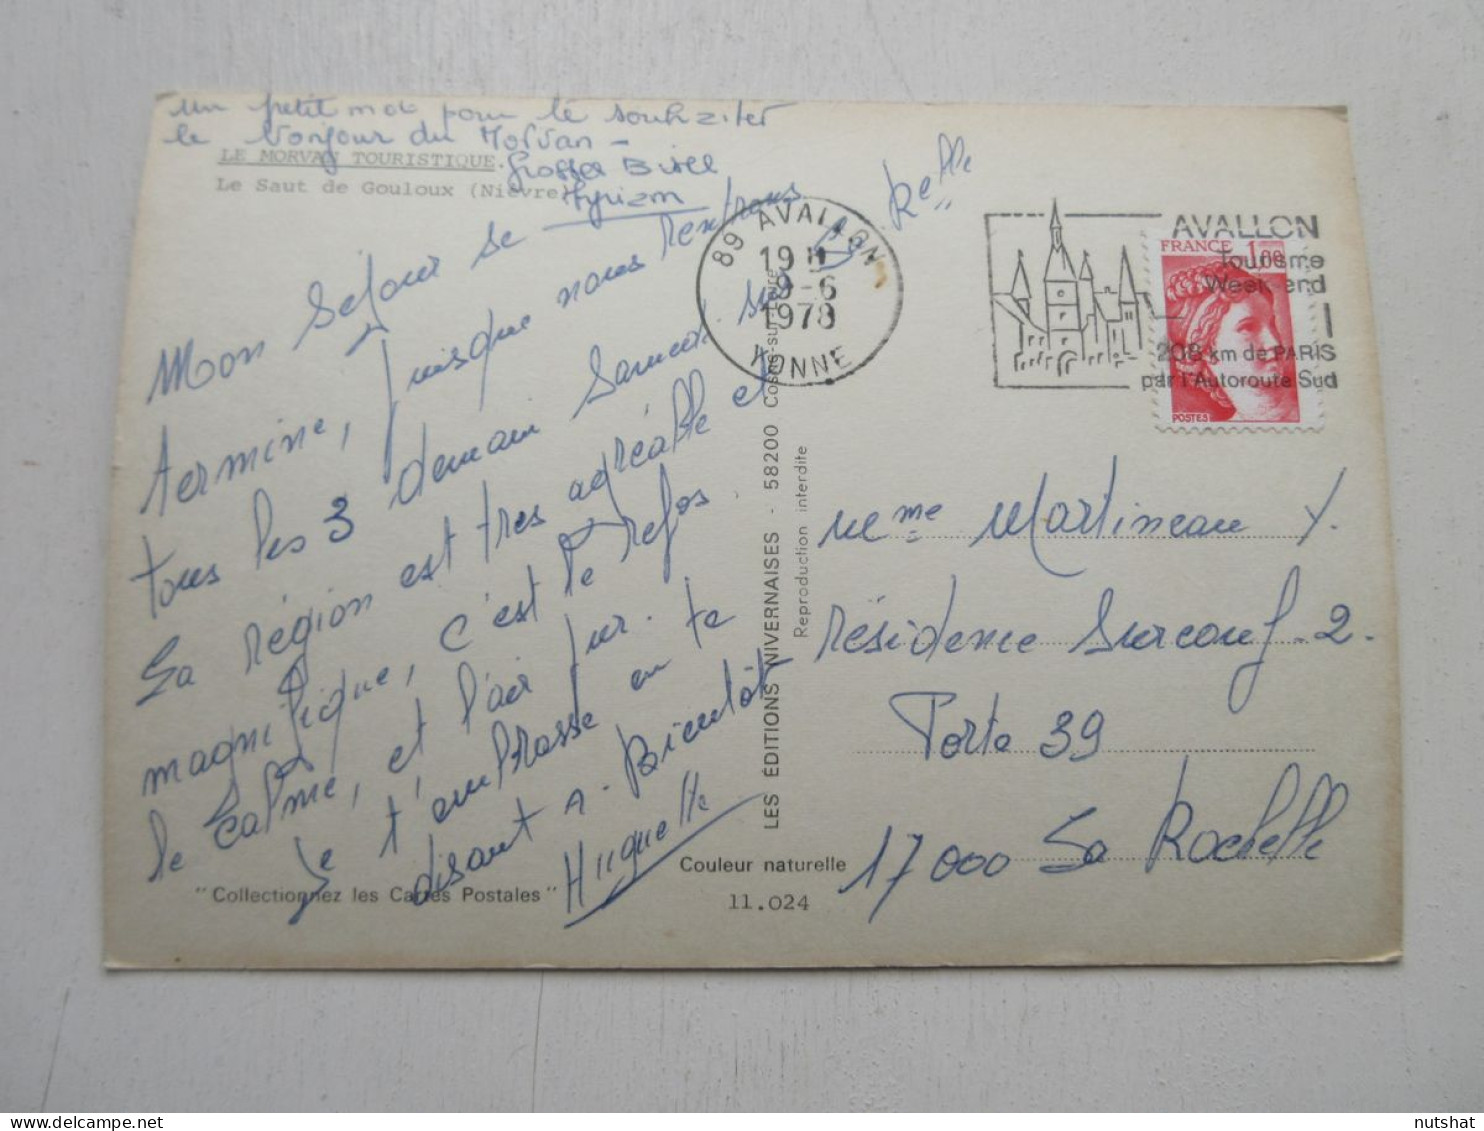 un petit mot pour te souhaiter
le bonjour du Morvan -
grosses Bises
Myriam
LE MORVAN TOURISTIQUE.
Le Saut de Gouloux (Nièvre)
Mon séjour se
termine, puisque nous rentrons
tous les 3 demain Samedi sur La Relle
La région est très agréable et
magnifique, c'est le repos.
le calme, et l'air pur.
Je t'embrasse en te
disant A. Bientôt
Huguette
"Collectionnez les Cartes Postales"
Couleur naturelle
11.024
LES ÉDITIONS NIVERNAISES - 58200 Cosne-sur-Loire
Reproduction interdite
89 AVALLON
19 H
9-6
1978
YONNE
AVALLON
Tourisme
Week-end
208 km de PARIS
par l'Autoroute Sud
FRANCE 1,00
POSTES
Mme Martineau Y.
résidence Surcouf-2.
Porte 39
17000 La Rochelle
nutshat